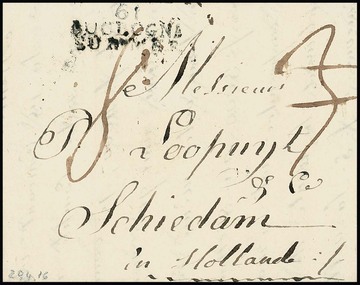 61
BOULOGNE
SUR MER
Messieurs
P. Loopuyt
& Co
Schiedam
in Hollande
29.4.16